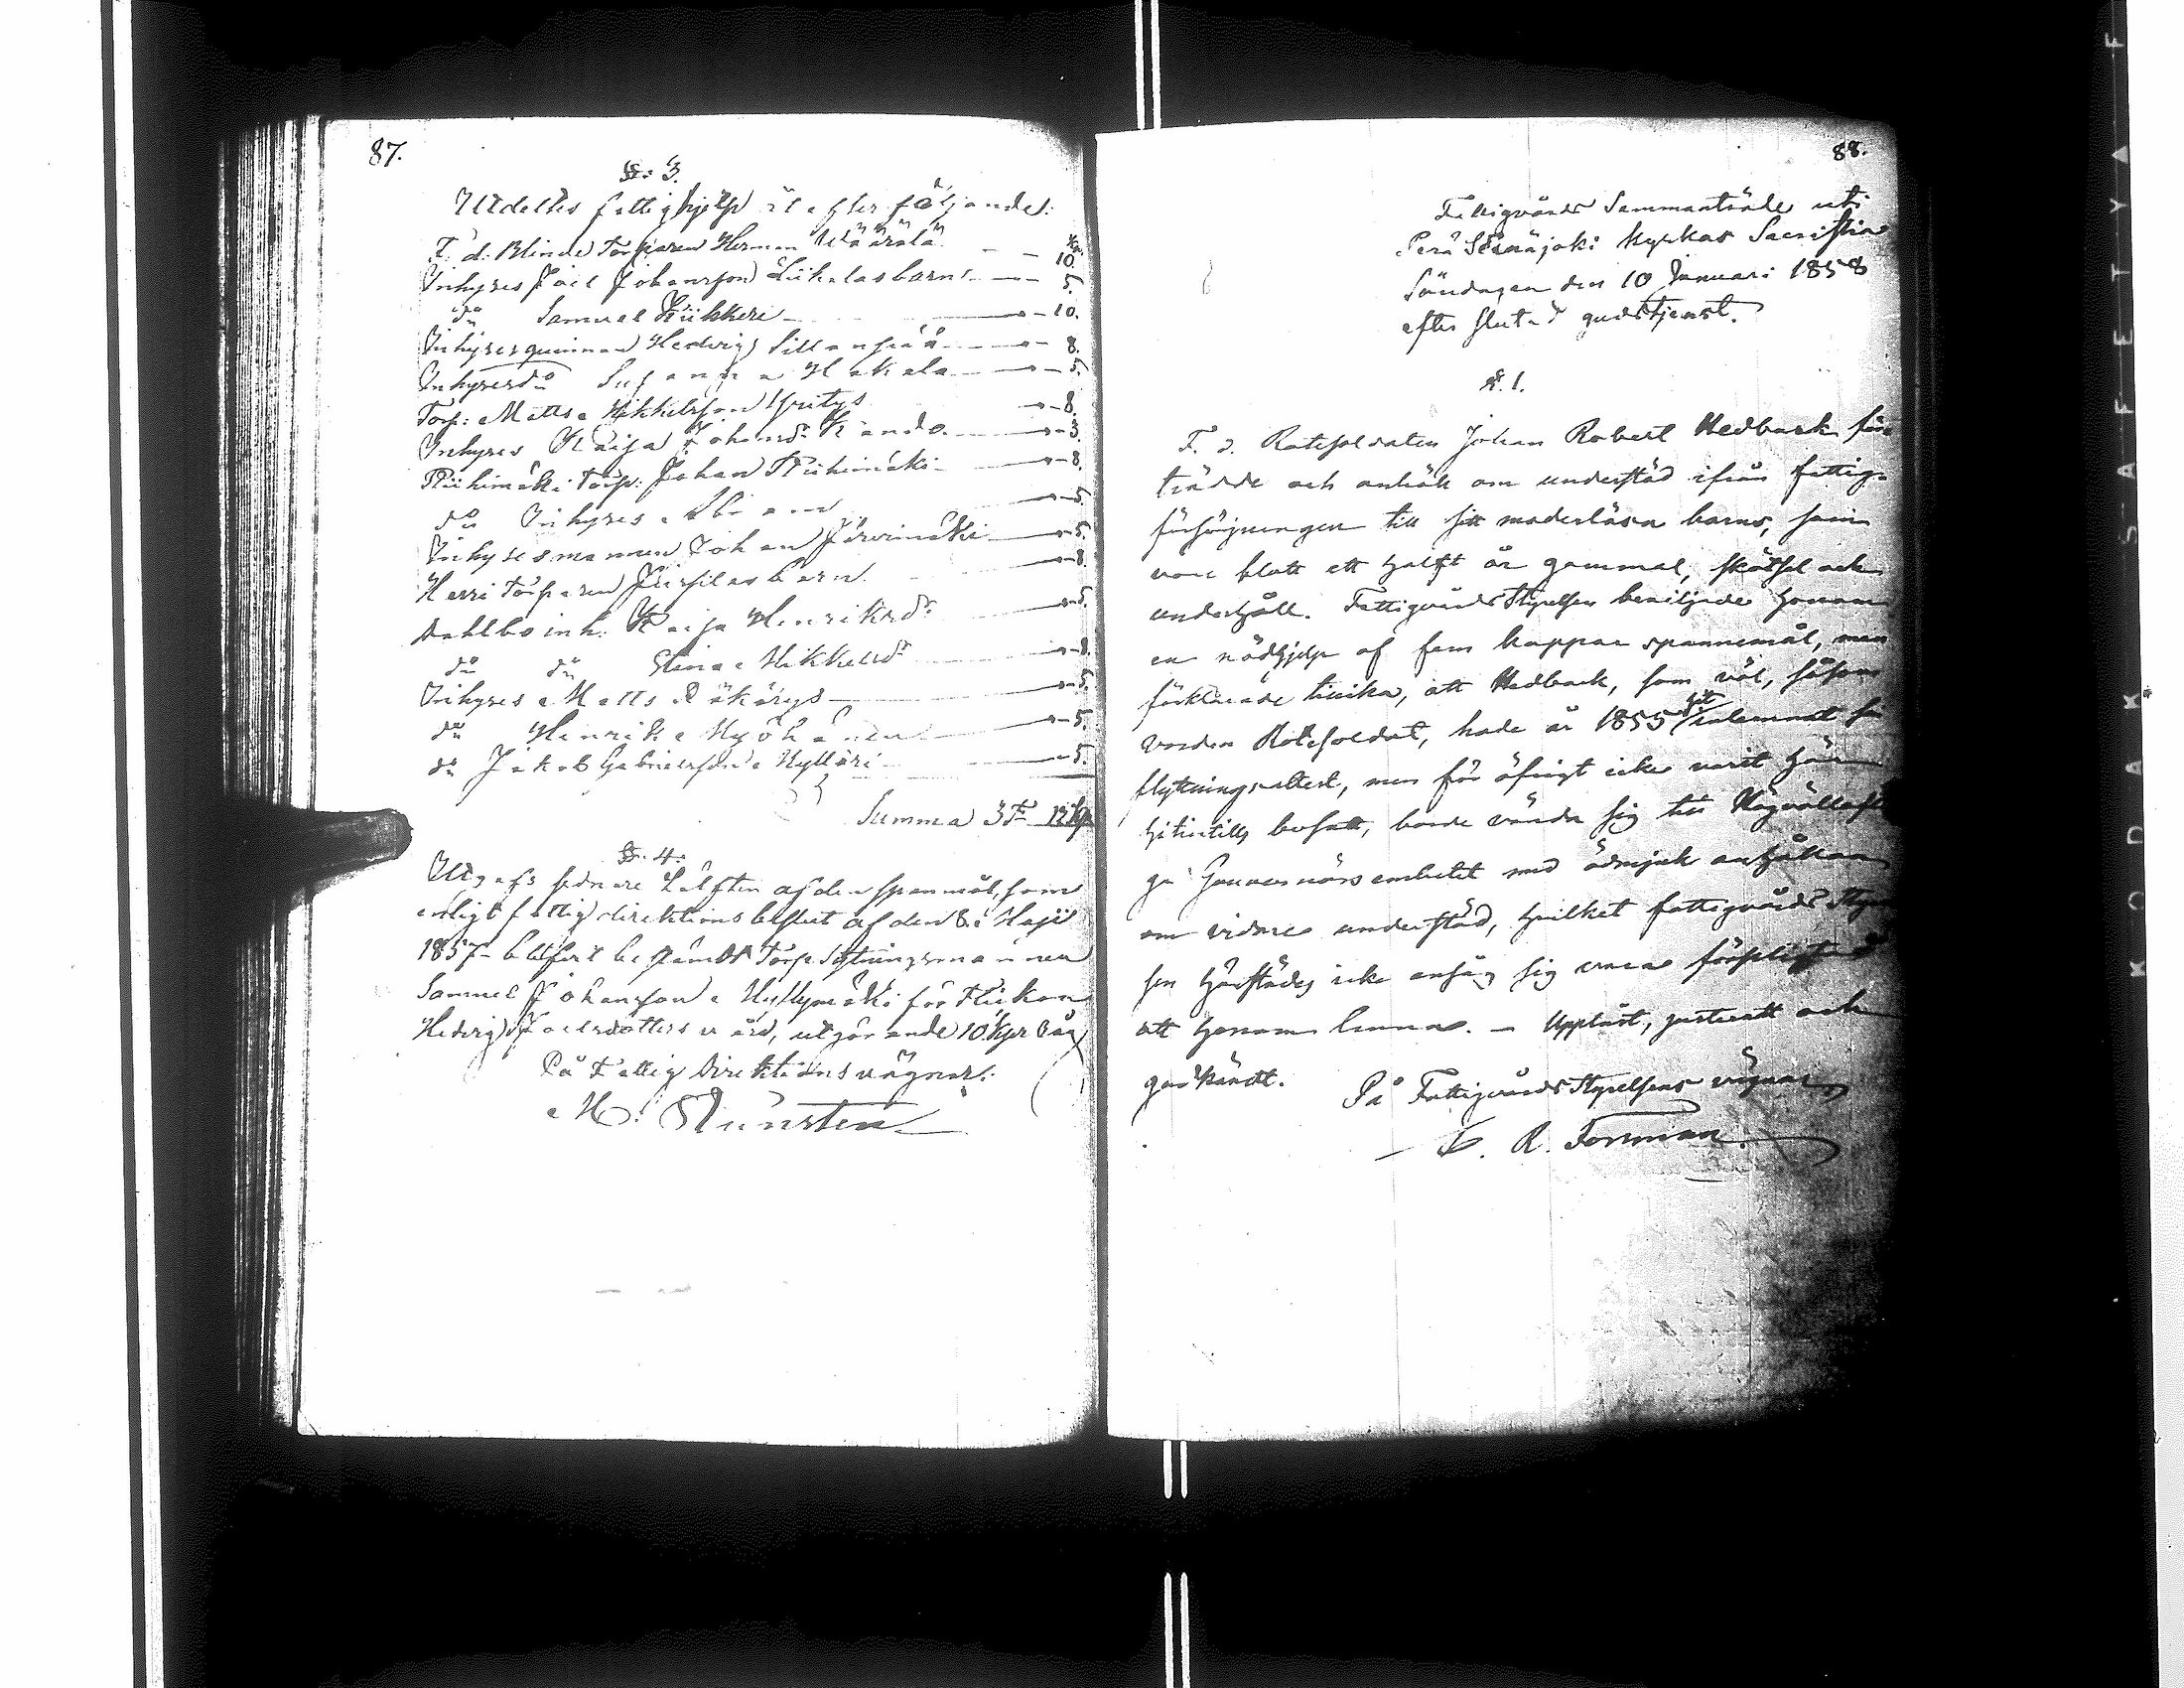 87.
§. 3.
Utdeltes fattighjelp åt efterföljande:
F. d. Blinde Torparen Herman Määrälä — — 10. Kr.
Inhyses Joel Johansson Liikalas barn — — 5.
do Samuel Kiikkeri — — 10.
Inhysesqvinnan Hedvig Sillanpää — — 8.
Inhyses do Susanna Hakala — — 5.
Torp: Matts Mikkelsson Yrityś — 8.
Inhyses Kaija Johansdr Kando — 3.
Riihimäki Torp: Johan Riihimäki — 8.
do Inhyses — 5.
Inhysesmannen Johan Järvimäki — 5.
Harri Torparen barn — 8.
Dahlbo inh. Kaija Henriksdr — 5.
do do Stina Mikkelsdr — 8.
Inhyses Matts Räkärys — 5.
do Henrik Myöhänen — 5.
do Jakob Gabrielsson Mylläri — 5.
Summa 3 T. 12 Kp
§. 4.
Utgafs sednare hälften af den spanmål, som
enligt fattigdirektions beslut af den 3. Maji
1857 blifvit bestämdt Torp. Sytningsmannen
Samuel Johansson Myllymäki för Flickan
Hedvig Joelsdotters vård, utgörande 10 Kpr Råg
På Fattig Direktions vägnar:
M. Runsten
88.
Fattigvårds Sammanträde uti
Perä Seinäjoki Kyrkas Sacristia
Söndagen den 10 Januari 1858
efter slutad gudstjenst.
§. 1.
F. d. Rotesoldaten Johan Robert Hedback före
trädde och anhöll om understöd ifrån fattig-
försörjningen till sitt moderlösa barns, som
vore blott ett halft år gammal, skötsel och
underhåll. FattigvårdsStyrelsen beviljade honom
en nödhjelp af fem kappar spannemål, men
förklarade tillika, att Hedback, som väl, såsom
vorden Rotesoldat, hade år 1855 hit inlemnat sin
flyttningsattest, men för öfrigt icke varit här
hitintills bosatt, borde vända sig till Högvällofli
ga Gouvernörsembetet med ödmjuk anhållan
om vidare understöd, hvilket fattigvårds Styrel
sen härstädes icke ansåg sig vara förpligtad
att honom lemna. — Uppläst, justeradt och
godkändt. På FattigvårdsStyrelsens vägnar
R. Forsman.
KODAK SAFETY